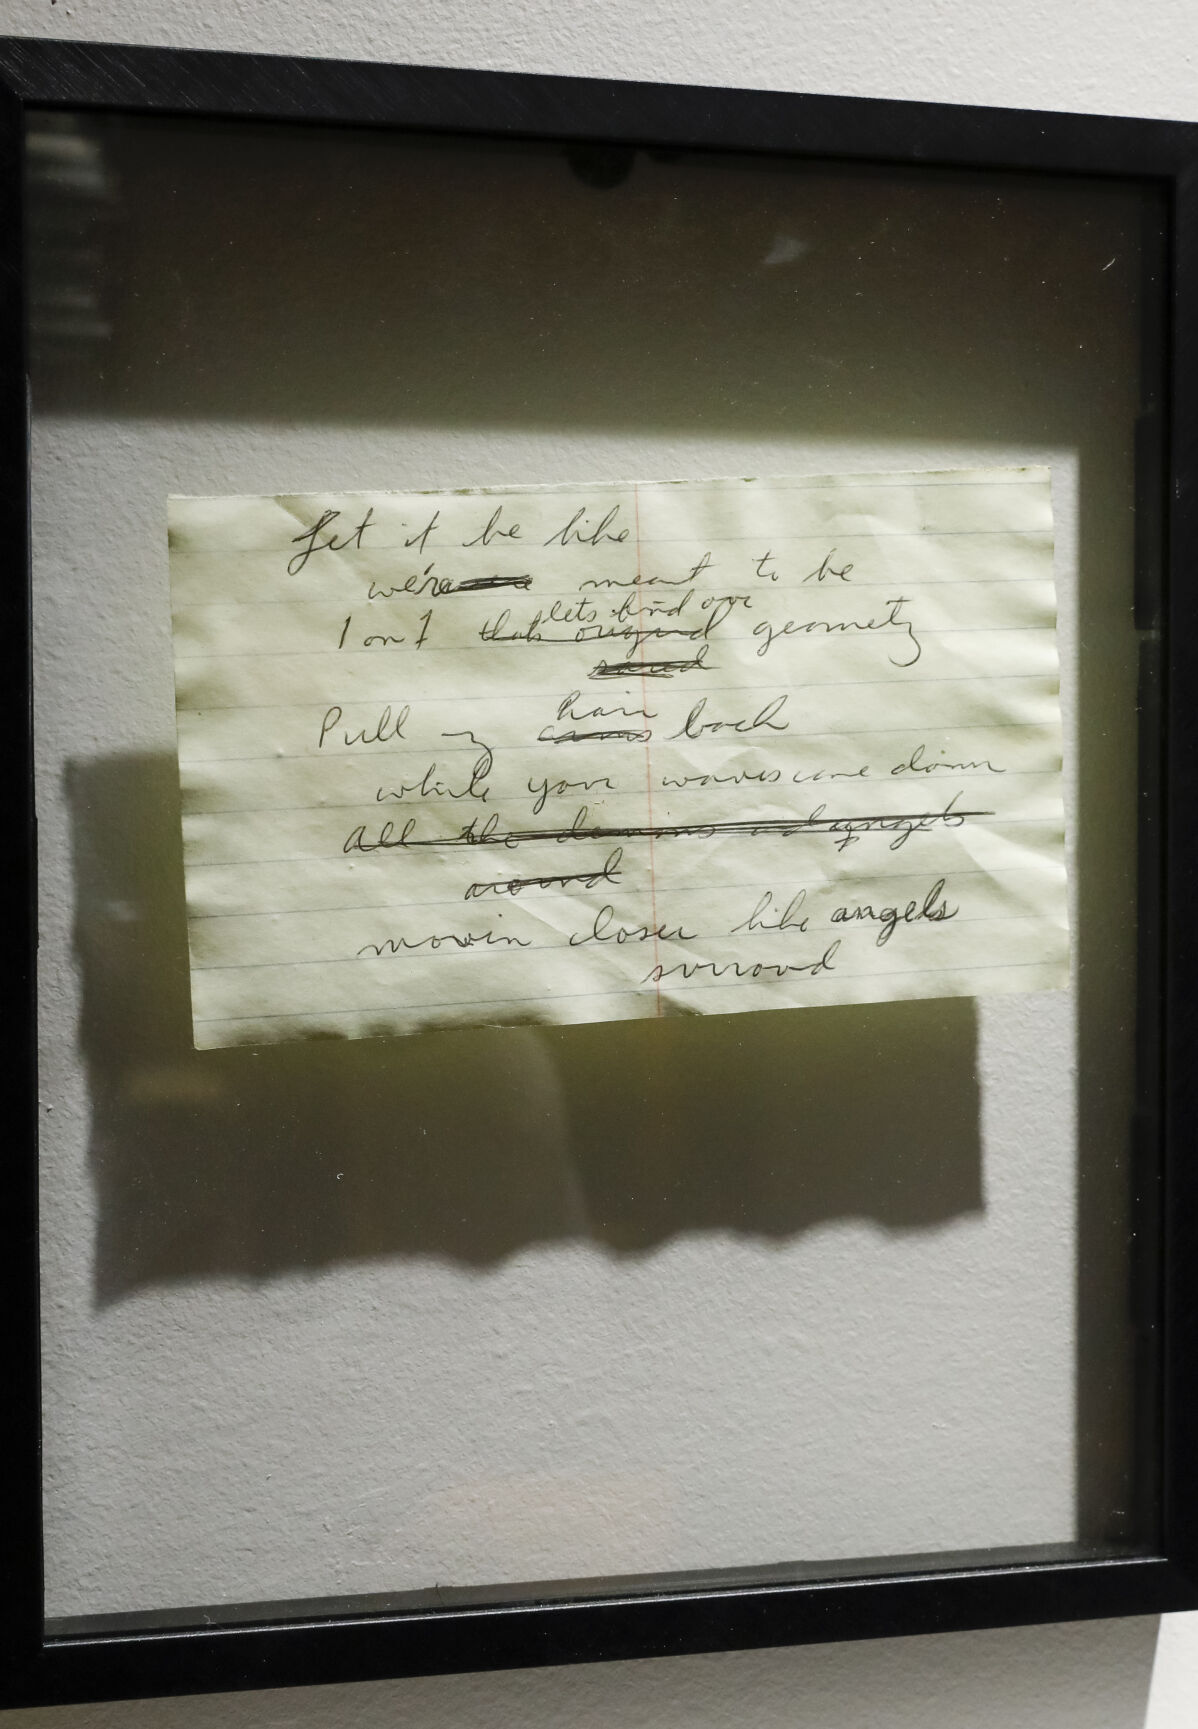 Let it be like
we're meant to be
lets find our
1 on 1 thats original geometry
Pull my hair back
arms
while your waves come down
All the demons and angels
around
movin closer like angels
surround